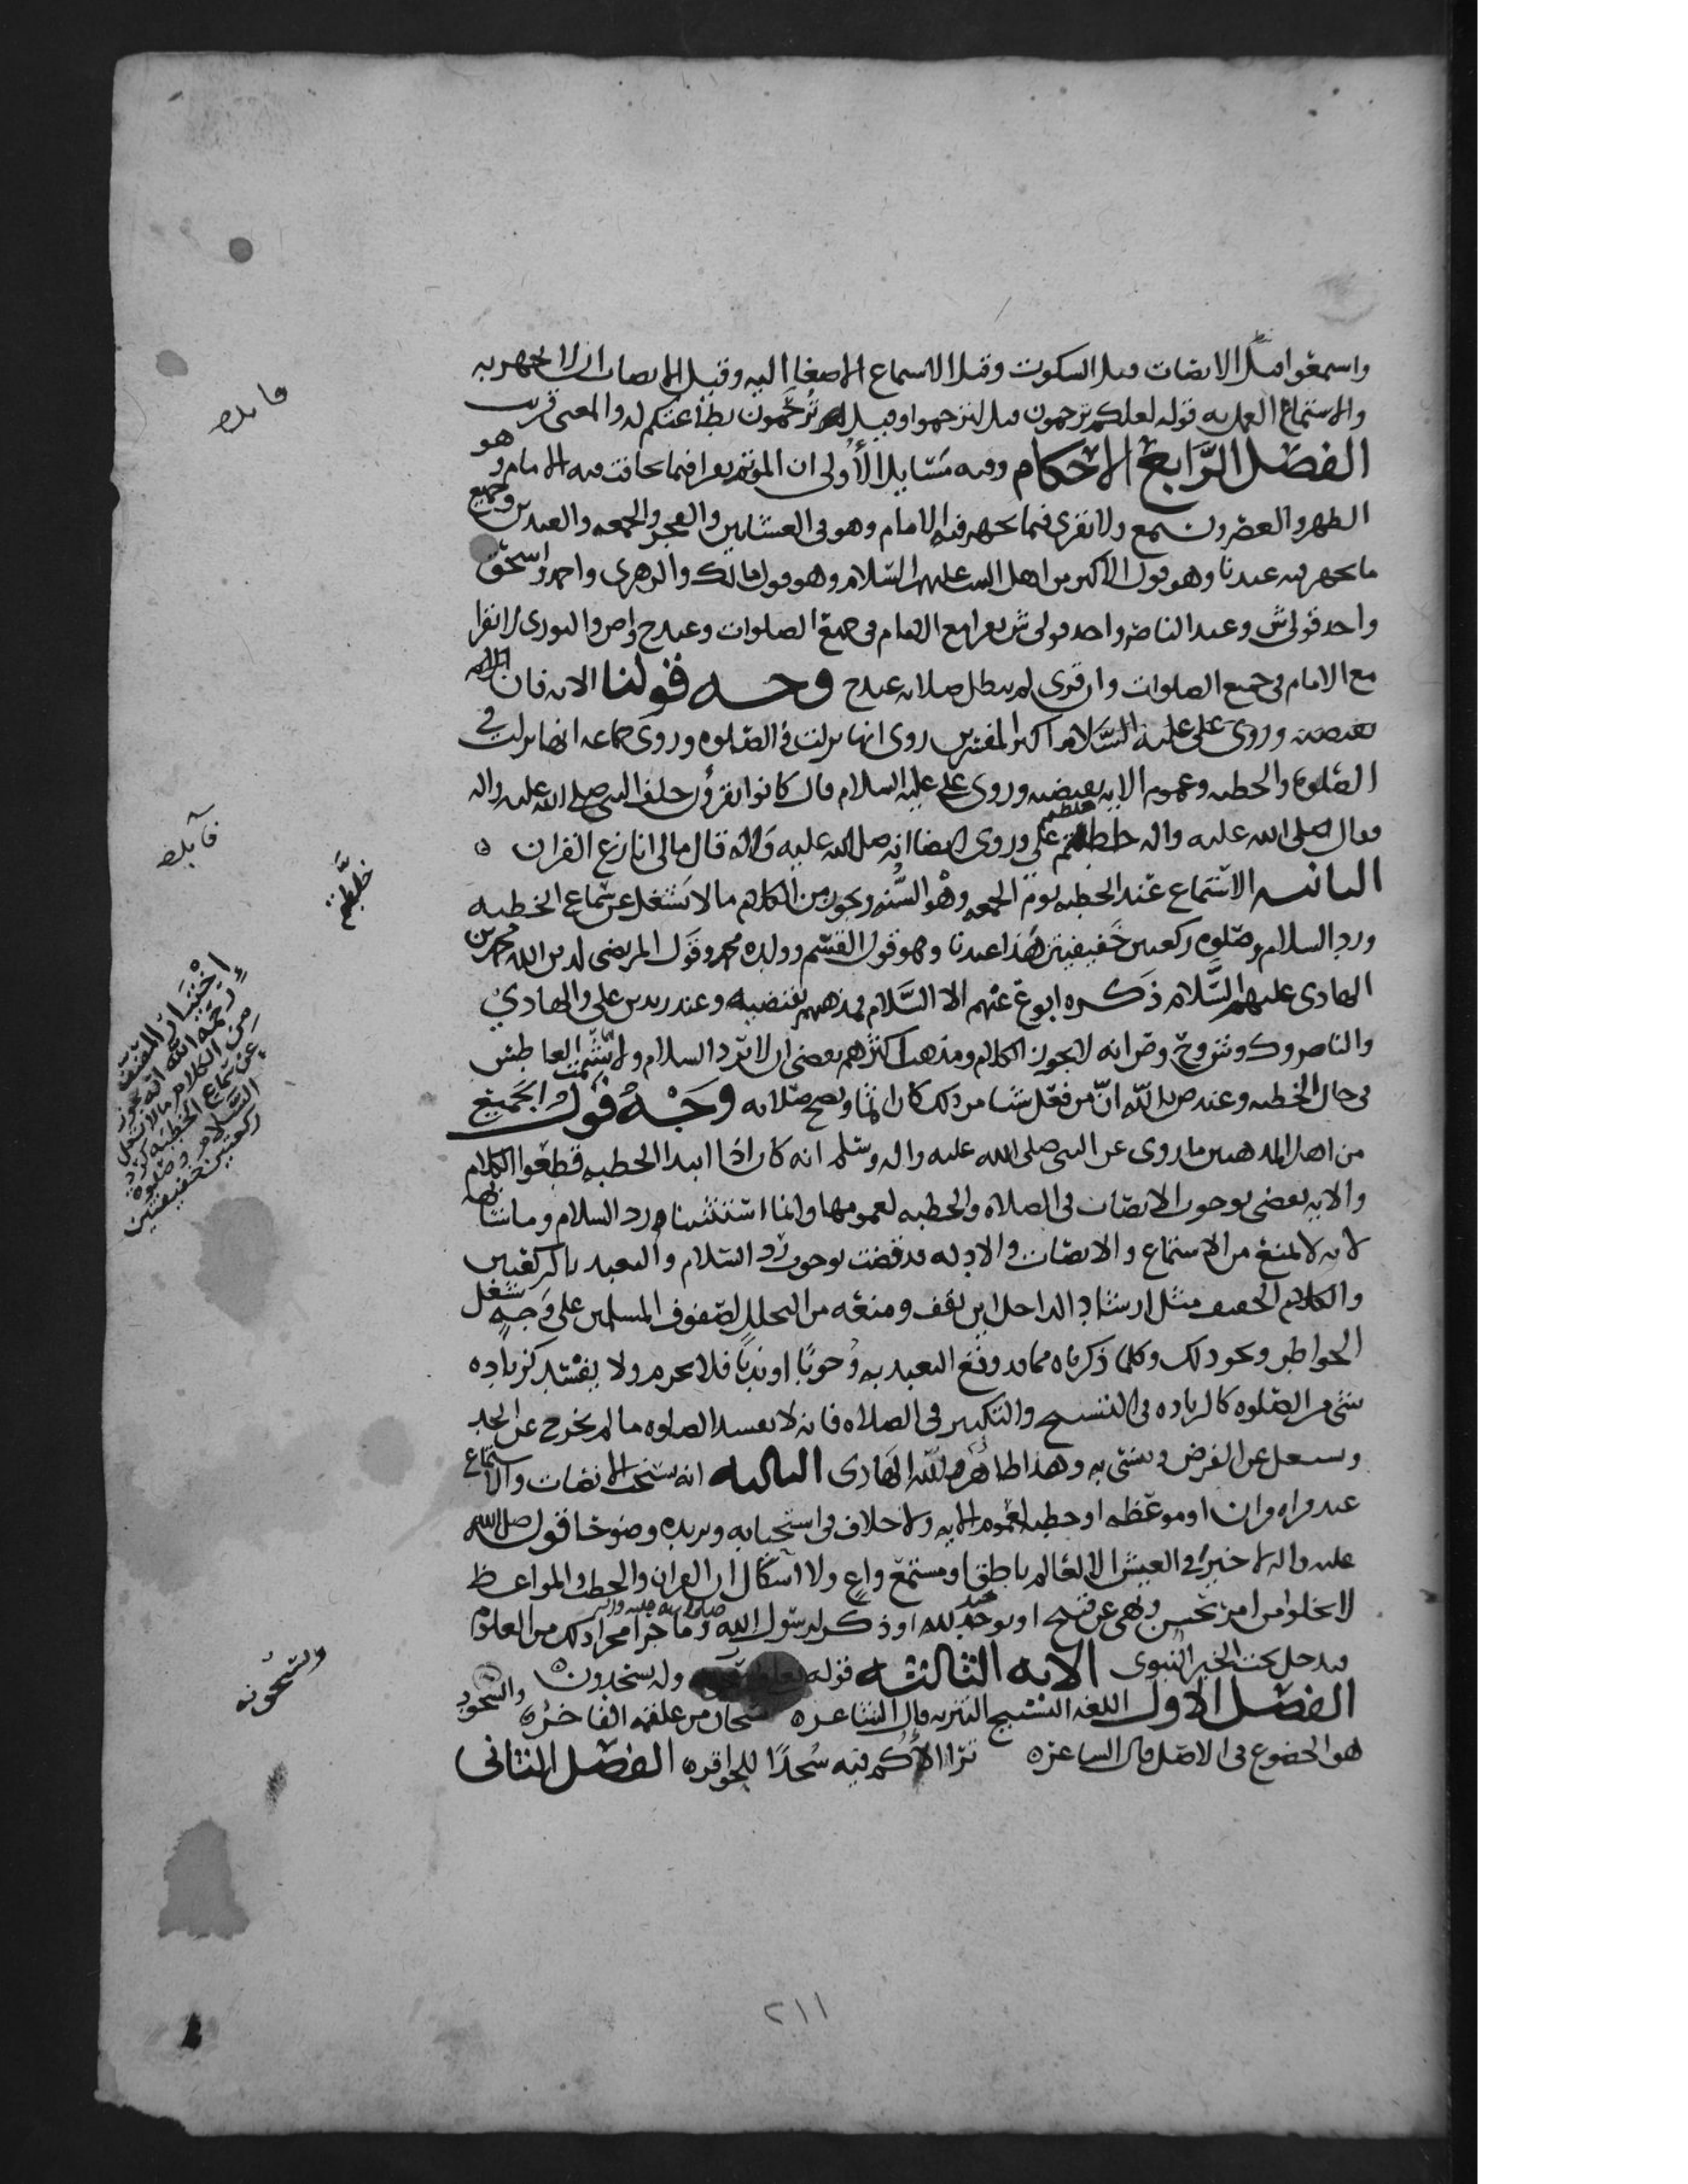 واسمعوا قيل الانصات قيل السكوت وقيل الاستماع الاصغا اليه وقيل الانصات ان لا يجهر به
والاستماع العمل به قوله لعلكم ترحمون قيل لترحموا وقيل ترحمون بطاعتكم له والمعنى قريب
الفصل الرابع الاحكام وفيه مسايل الأولى ان المؤتم يقرا فيما يخافت فيه الامام وهو
الظهر والعصر ويسمع ولا يقرى فيما يجهر فيه الامام وهو في العشايين والفجر والجمعه والعيدين وجميع
ما يجهر فيه عندنا وهو قول الاكثر من اهل البيت عليهم السلام وهو قول مالك والزهرى واحمد واسحق
واحد قولى ش وعند الناصر واحد قولى ش يقرا مع الامام في جميع الصلوات وعند ح واص والثورى لا يقرا
مع الامام في جميع الصلوات وان قرى لم تبطل صلاته عند ح وجه قولنا الايه فان
تقتضيه وروى على عليه السلام اكثر المفسرين روى انها نزلت في الصلوه وروى جماعه انها نزلت في
الصلوة والخطبه وعموم الايه يقتضيه وروى على عليه السلام قال كانوا يقرؤن خلف النبى صلى الله عليه واله
فقال صلى الله عليه واله خلطتم على وروى ايضا انه صلى الله عليه واله قال مالى انازع القران ه
الثانيه الاستماع عند الخطبه يوم الجمعه وهو السنه ويجوز من الكلام ما لا يشغل عن سماع الخطبه
ورد السلام وصلوه ركعتين خفيفيتين هذا عندنا وهو قول القسم وولده محمد وقول المرتضى لدين الله محمد بن
الهادى عليهم السلام ذكره ابوع عنهم الا السلام فمذهبهم يقتضيه وعند زيد بن على والهادي
والناصر وك وش وح وص انه لا يجوز الكلام ومذهب اكثرهم يقضى ان لا يرد السلام ولا يشمت العاطش
في حال الخطبه وعند ص بالله ان من فعل شيا من ذلك كان اثما وتصح صلاته وجه قول الجميع
من اهل المذهبين ما روى عن النبى صلى الله عليه واله وسلم انه كان اذا ابتدا الخطبه قطعوا الكلام
والايه تقضى بوجوب الانصات في الصلاه والخطبه لعمومها وانما استثنينا رد السلام وما شابهه
لانه لا يمنع من الاستماع والانصات والادله قد قضت بوجوب رد السلام والتعبد بالركعتين
والكلام الخفيف مثل ارشاد الداخل اين يقف ومنعه من التخلل لصفوف المسلمين على وجه يشغل
الخواطر ونحو ذلك وكلما ذكرناه مما قد وقع التعبد به وجوبا او ندبا فلا يحرم ولا يفسد كزياده
شى في الصلوه كالزياده في التسبيح والتكبير في الصلاه فانه لا يفسد الصلوه ما لم يخرج عن الحد
ويشغل عن الفرض وينسى به وهذا ظاهر الهادى الثالثه انه يستحب الانصات والاستماع
عند قراه قران او موعظه او خطبه لعموم الايه ولا خلاف في استحبابه ويزيده وضوحا قول صلى الله
عليه واله لا خير في العيش الا لعالم ناطق او مستمع واع ولا اشكال ان القران والخطب والمواعظ
لا يخلوا من امر بحسن ونهى عن قبيح او توحيد لله او ذكر لرسول الله صلى الله عليه واله وما جرا مجرا ذلك من العلوم
فيدخل تحت الخبر النبوى الايه الثالثه قوله تعالى وله يسجدون ه
الفصل الاول اللغه التسبيح التنزيه قال الشاعر ه سبحان من علقمه الفاخر ه والسجود
هو الخضوع في الاصل قال الشاعر ه ترا الأكم فيه سجدا للحوافر ه الفصل الثانى
فايده
فايده
خلطتم
اختيار المصنف
رحمه الله انه يجوز
من الكلام ما لا يشغل
عن سماع الخطبه كرد
السلام وصلوة
ركعتين خفيفتين
ويسبحونه
٢١١